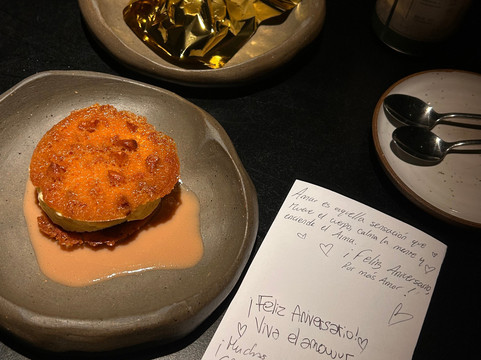 Amar es aquella sensación que
mueve el cuerpo calma la mente y
enciende el Alma.
¡Feliz Aniversario,
Por más Amor!
¡Feliz Aniversario!
Viva el amouur
¡Muchas